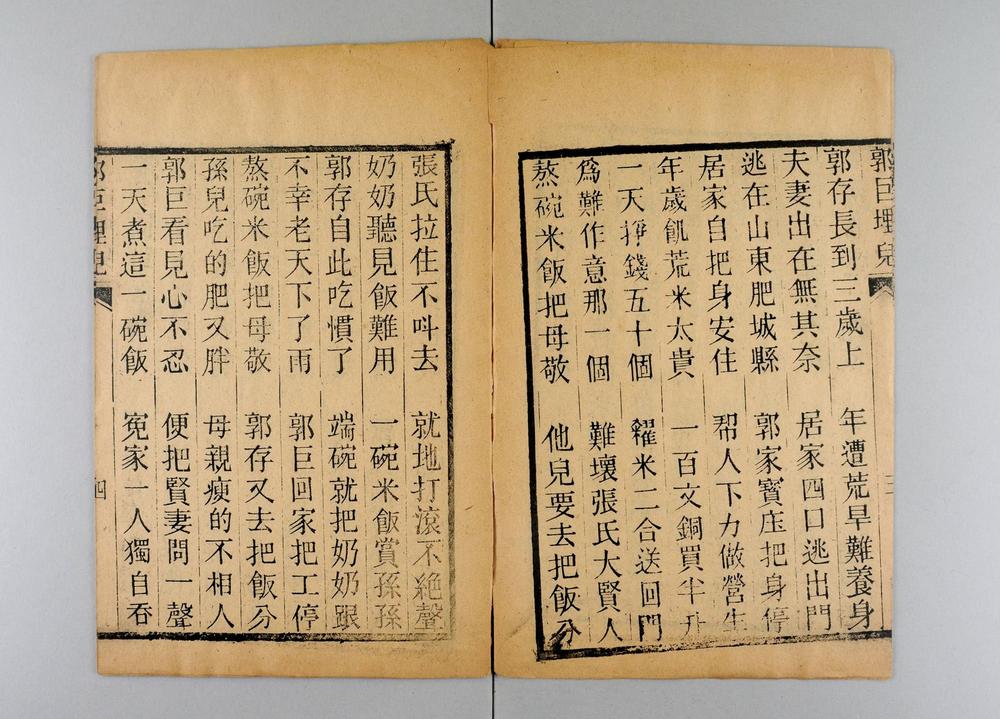 郭巨埋兒
郭存長到三歲上 年遭荒旱難養身
夫妻出在無其奈 居家四口逃出門
逃在山東肥城縣 郭家寶庄把身停
居家自把身安住 帮人下力做營生
年歲飢荒米太貴 一百文銅買半升
一天掙錢五十個 糴米二合送回門
爲難作意那一個 難壞張氏大賢人
熬碗米飯把母敬 他兒要去把飯分
張氏拉住不呌去 就地打滾不絕聲
奶奶聽見飯難用 一碗米飯賞孫孫
郭存自此吃慣了 端碗就把奶奶跟
不幸老天下了雨 郭巨回家把工停
熬碗米飯把母敬 郭存又去把飯分
孫兒吃的肥又胖 母親瘦的不相人
郭巨看見心不忍 便把賢妻問一聲
一天煮這一碗飯 冤家一人獨自吞
郭巨埋兒 四